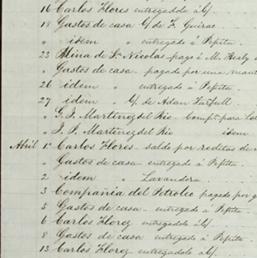 16 Carlos Flores entregadole á
18 Gastos de casa
" idem " entregado á Pepita
23 Mina de Sn Nicolas pago á M. Realy
" Gastos de casa pagado por una
26 idem " entregado á Pepita
27 idem " de Adan
" J. P. Martinez del Rio
" J. P. Martinez del Rio idem
Abril 1º Carlos Florez saldo por reditos de
" Gastos de casa entregado á Pepita
2 idem " Lavandera
3 Compañia del Petroleo pagado por
5 Gastos de casa entregado á Pepita
6 Carlos Florez entregadole á
8 Gastos de casa entregado á Pepita
13 Carlos Florez entregadole á